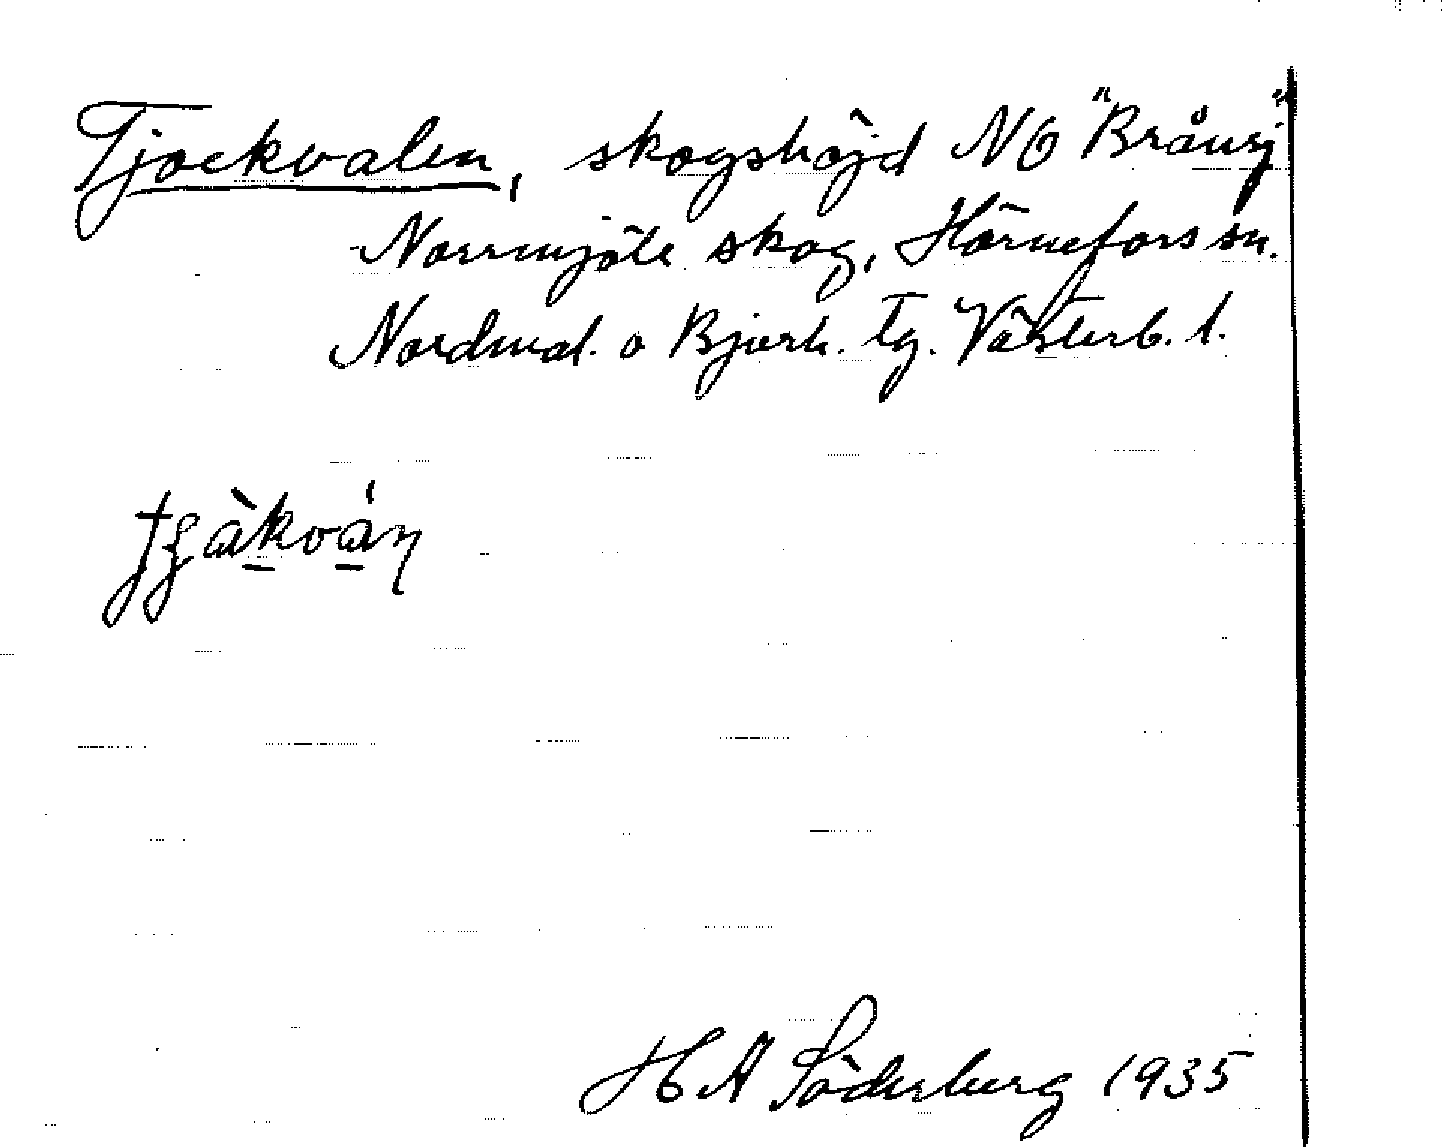 Tjockvalen, skogshöjd NO "Brånsj"
Norrmjöle skog, Hörnefors sn.
Nordmal. o Bjurh. tg. Västerb. l.
H A Söderberg 1935